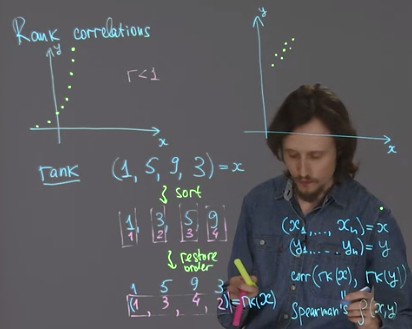 Rank correlations
y
x
r<1
y
x
rank (1, 5, 9, 3) = x
sort
1 3 5 9
1 2 3 4
restore order
1 5 9 3
(1, 3, 4, 2) = rk(x)
(x₁, ..., xₙ) = x
(y₁, ..., yₙ) = y
corr(rk(x), rk(y))
"
Spearman's ρ(x,y)